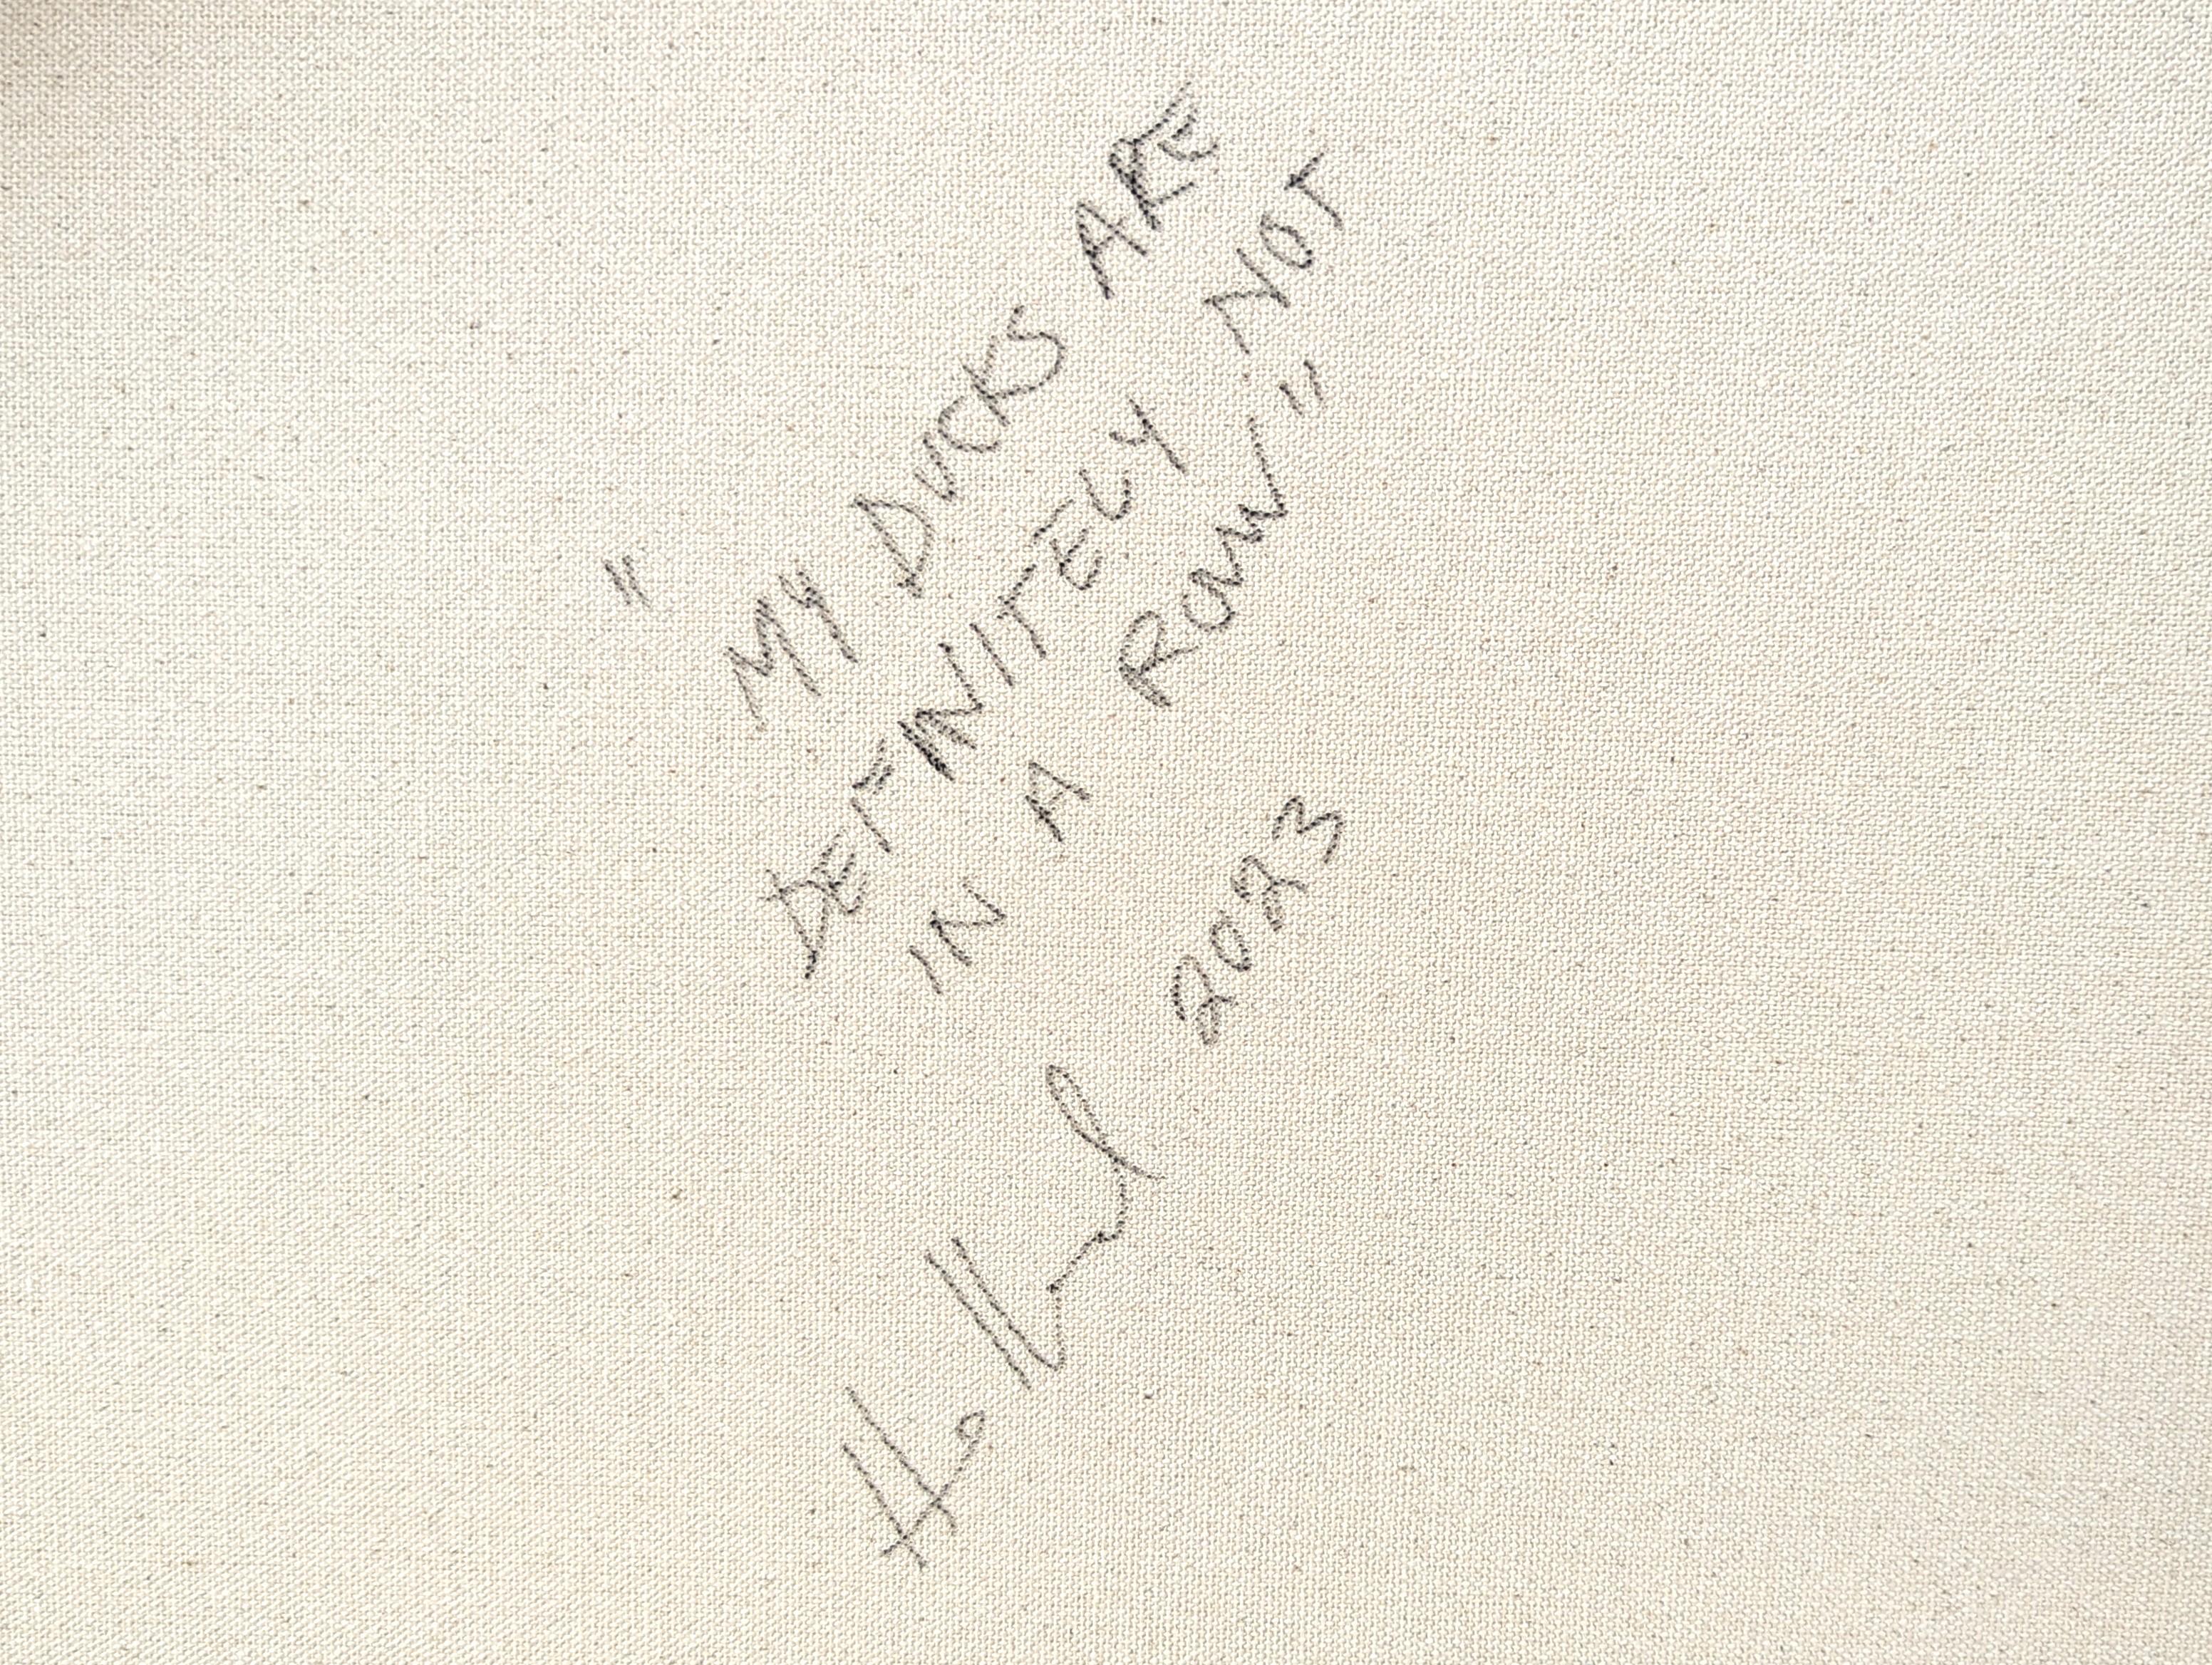 "MY DUCKS ARE
DEFINITELY NOT
IN A ROW"
Holland 2023